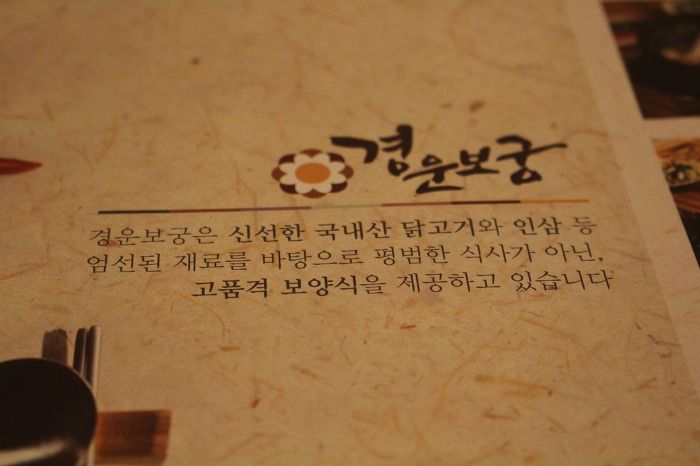 경운보궁
경운보궁은 신선한 국내산 닭고기와 인삼 등
엄선된 재료를 바탕으로 평범한 식사가 아닌,
고품격 보양식을 제공하고 있습니다